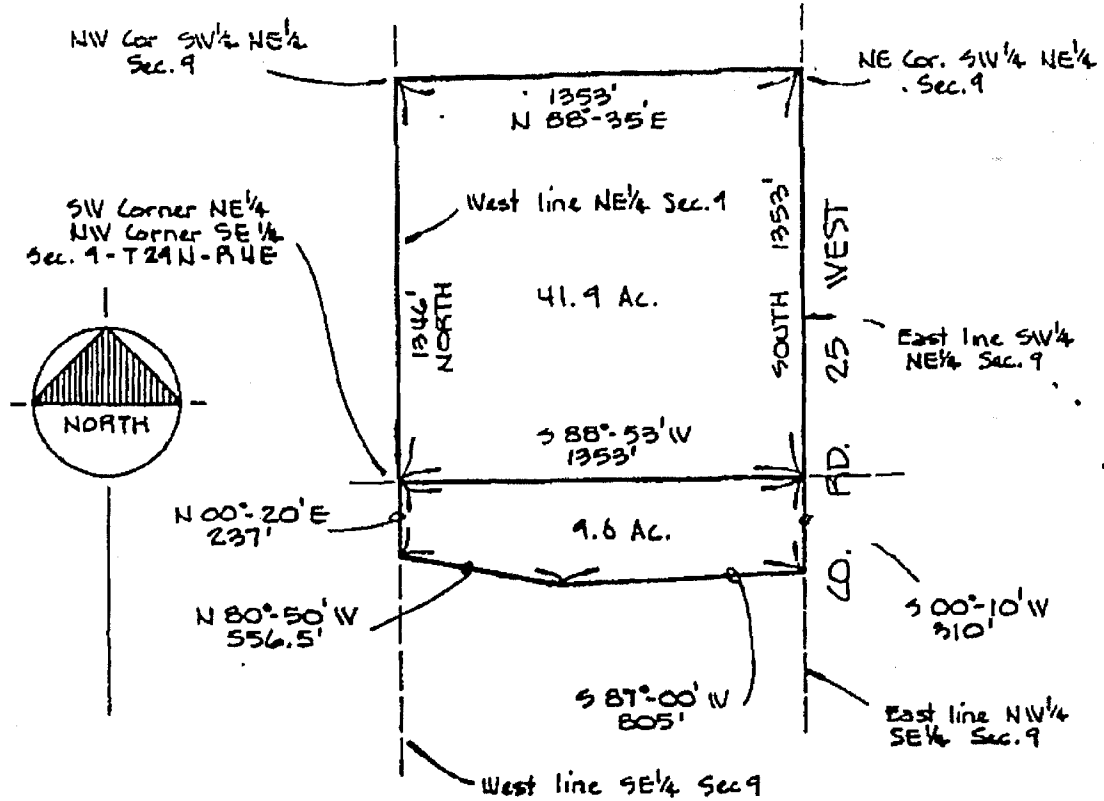 NW Cor SW¼ NE¼
Sec. 9
NE Cor. SW¼ NE¼
Sec. 9
1353'
N 88°-35'E
West line NE¼ Sec. 9
SW Corner NE¼
NW Corner SE¼
Sec. 9 - T29N - R4E
1346'
NORTH
41.9 Ac.
SOUTH 1353'
CO. RD. 25 WEST
East line SW¼
NE¼ Sec. 9
NORTH
S 88°-53' W
1353'
N 00°-20' E
237'
9.6 Ac.
N 80°-50' W
556.5'
S 00°-10' W
310'
S 87°-00' W
805'
East line NW¼
SE¼ Sec. 9
West line SE¼ Sec 9